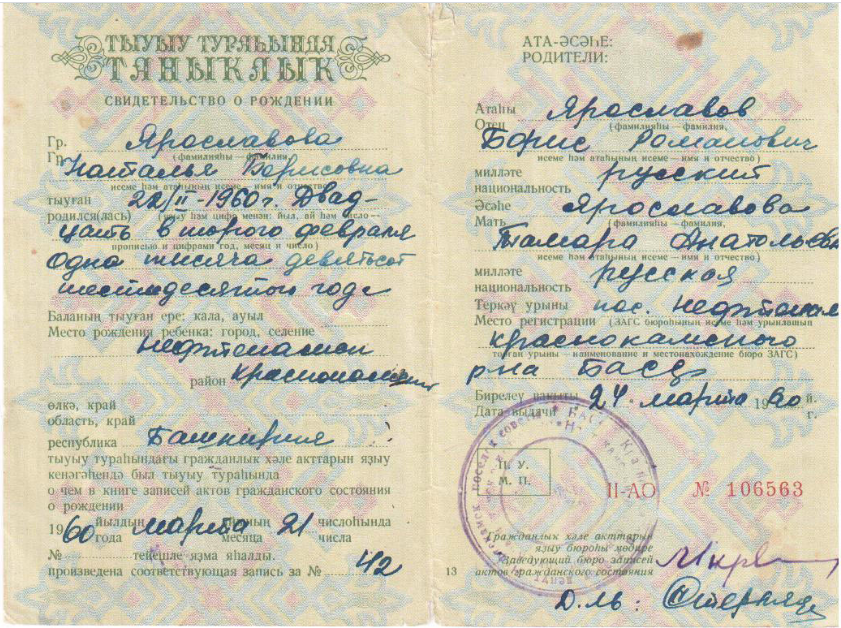 ТЫУЫУ ТУРАҺЫНДА
ТАНЫҠЛЫҠ
СВИДЕТЕЛЬСТВО О РОЖДЕНИИ
Гр. Ярославова
Гр. (фамилияһы — фамилия,
Наталья Борисовна
исеме һәм атаһының исеме — имя и отчество)
тыуған 22/II-1960 г. Двад-
родился(лась) (яҙыу һәм цифр менән: йыл, ай һәм число —
цать второго февраля
прописью и цифрами год, месяц и число)
Одна тысяча девятьсот
шестидесятого года
Баланың тыуған ере: кала, ауыл
Место рождения ребенка: город, селение
Нефтекамск
район Краснокамский
өлкә, край
область, край
республика Башкирия
тыуыу тураһындағы гражданлык хәле акттарын яҙыу
кенәгәһендә был тыуыу тураһында
о чем в книге записей актов гражданского состояния
о рождении
1960 йылдың марта айының 21 числоһында
года месяца числа
№ тейешле яҙма яһалды.
произведена соответствующая запись за № 42
АТА-ӘСӘҺЕ:
РОДИТЕЛИ:
Атаһы Ярославов
Отец (фамилияһы — фамилия,
Борис Романович
исеме һәм атаһының исеме — имя и отчество)
милләте русский
национальность
Әсәһе Ярославова
Мать (фамилияһы — фамилия,
Тамара Анатольевн
исеме һәм атаһының исеме — имя и отчество)
милләте русская
национальность
Теркәү урыны пос. Нефтекам
Место регистрации (ЗАГС бюроһының исеме һәм урынлашҡан
Краснокамского
торған урыны — наименование и местонахождение бюро ЗАГС)
р-на БАССР
Бирелеү ваҡыты 24 марта 1960 й.
Дата выдачи г.
П. У.
М. П.
II-АО № 106563
Гражданлыҡ хәле акттарын
яҙыу бюроһы мөдире
Заведующий бюро записей
актов гражданского состояния
13
Д-ль: